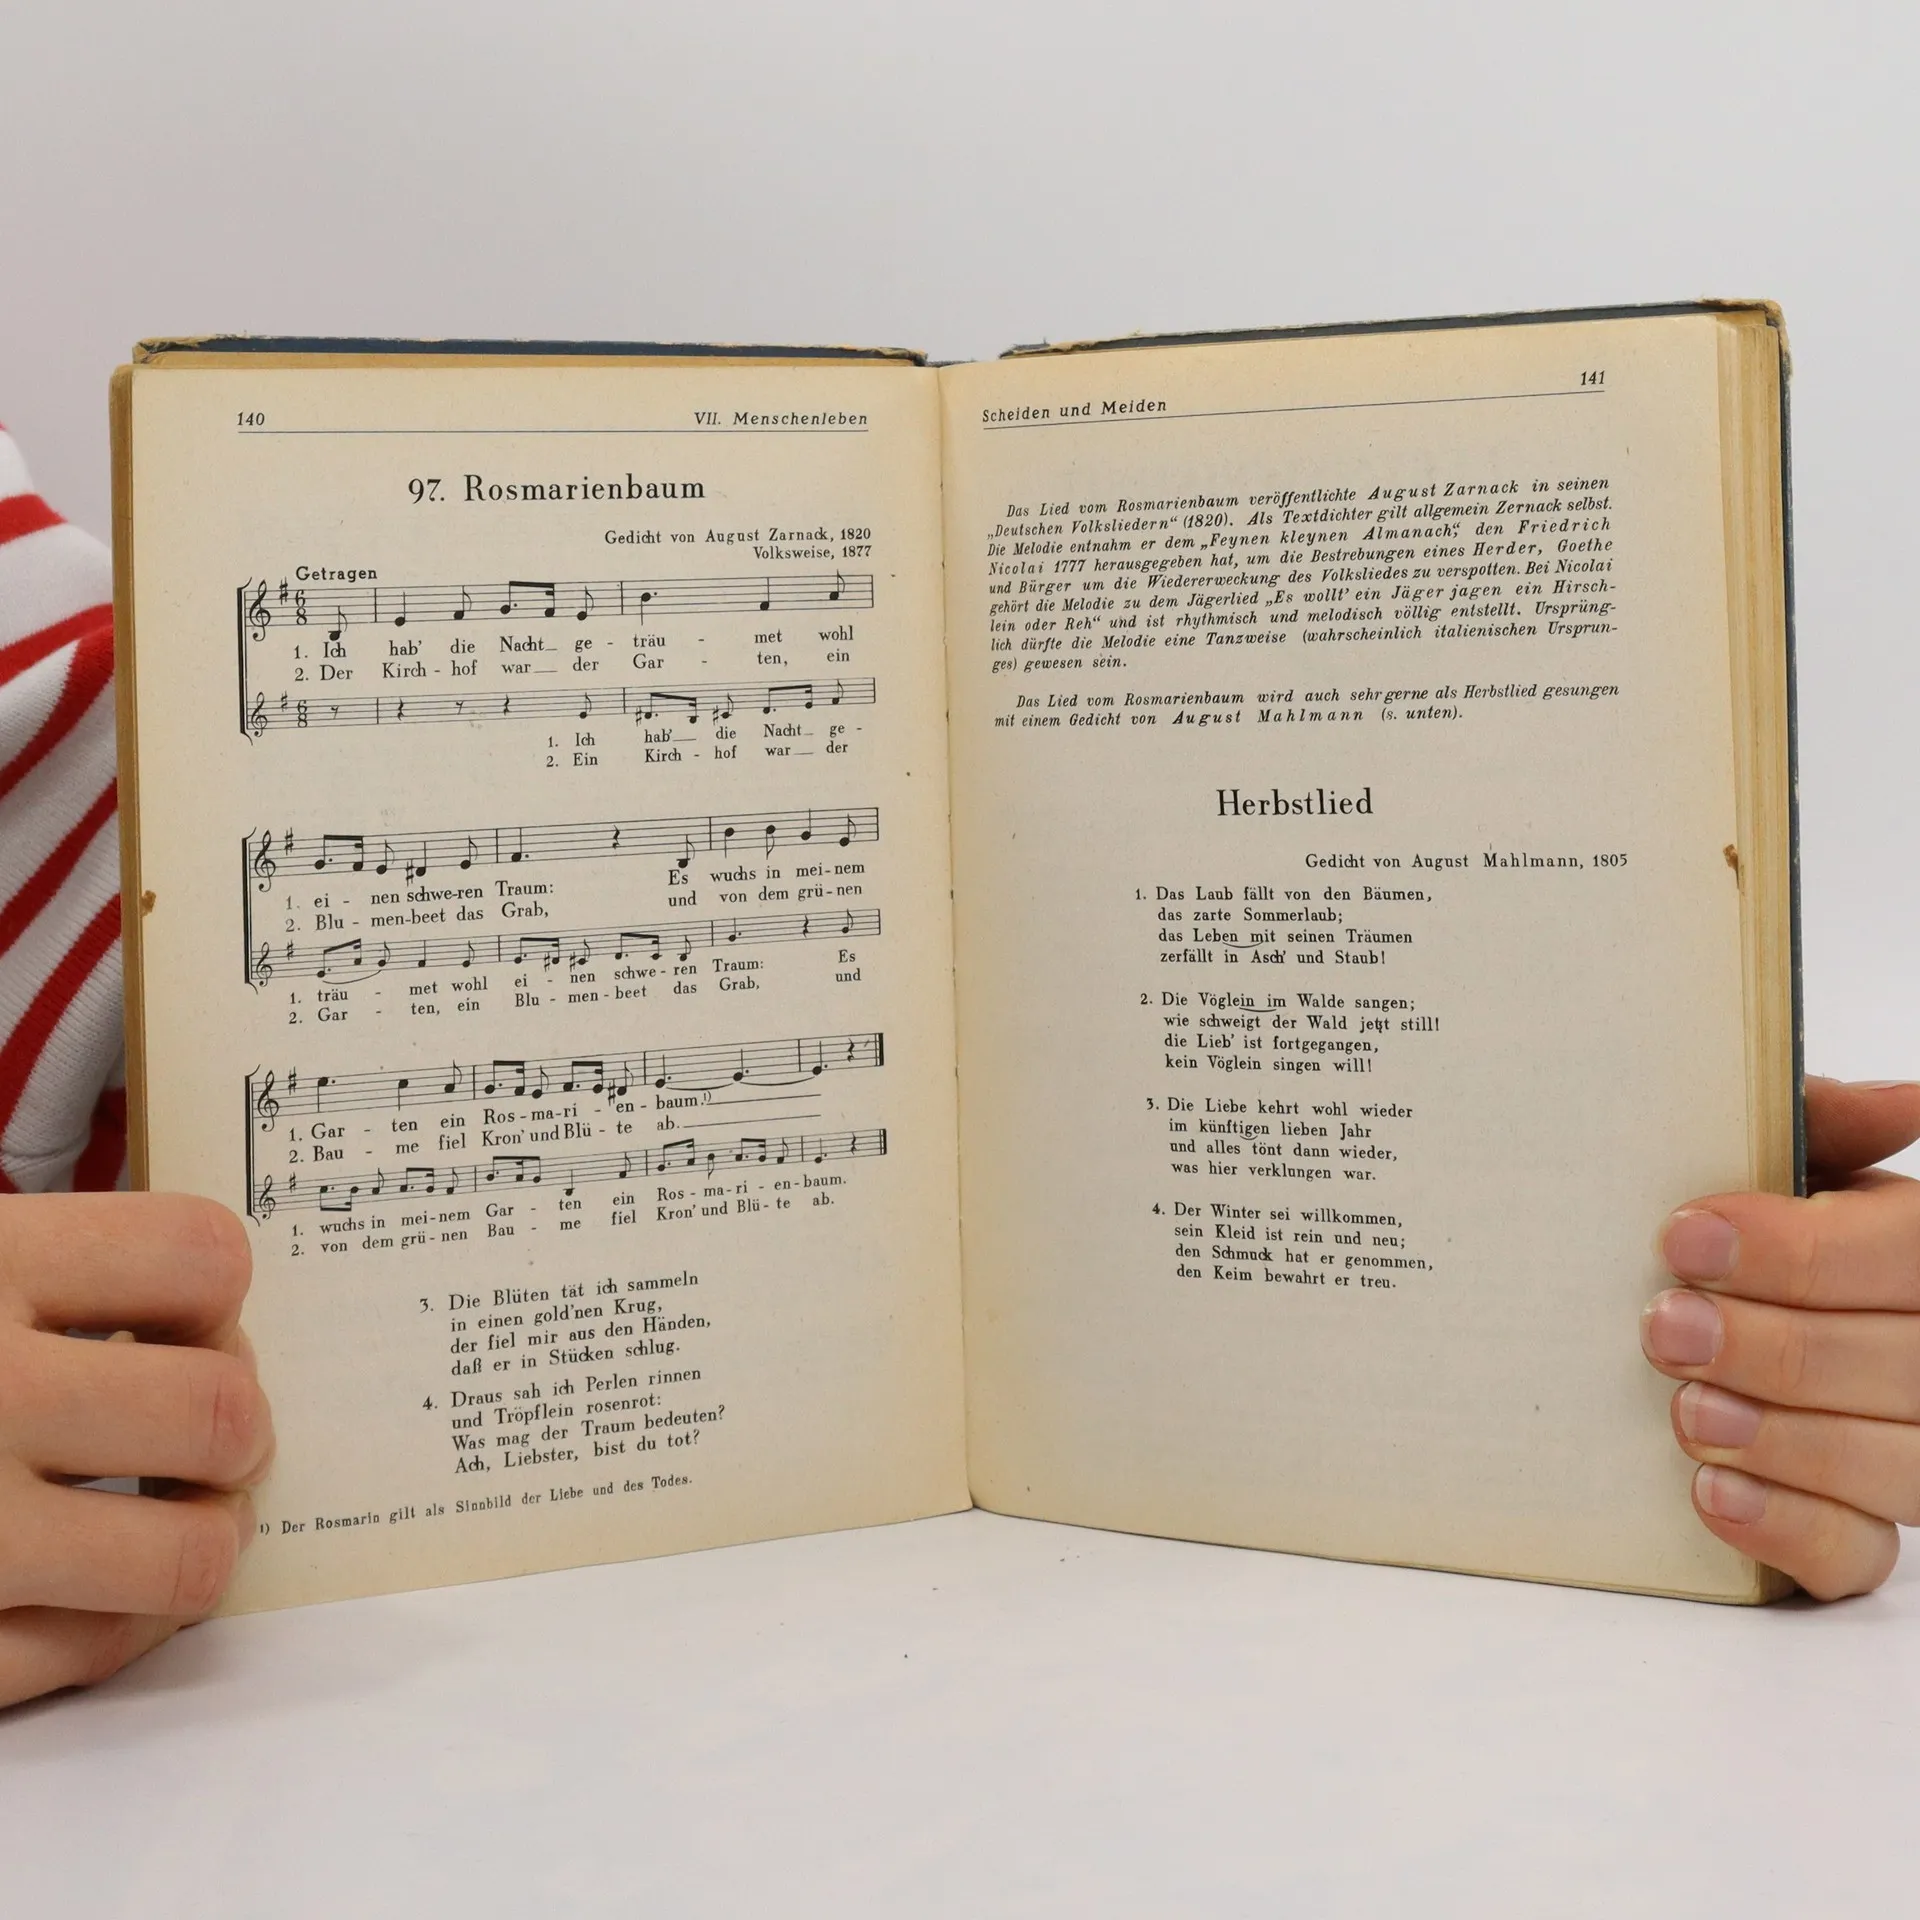 140 VII. Menschenleben
97. Rosmarienbaum
Gedicht von August Zarnack, 1820
Volksweise, 1877
Getragen
1. Ich hab' die Nacht ge - träu - met wohl
2. Der Kirch - hof war der Gar - ten, ein
1. Ich hab' die Nacht ge -
2. Ein Kirch - hof war der
1. ei - nen schwe-ren Traum: Es wuchs in mei-nem
2. Blu - men-beet das Grab, und von dem grü-nen
1. träu - met wohl ei - nen schwe-ren Traum: Es
2. Gar - ten, ein Blu - men-beet das Grab, und
1. Gar - ten ein Ros-ma-ri - en-baum.¹)
2. Bau - me fiel Kron' und Blü - te ab.
1. wuchs in mei-nem Gar - ten ein Ros-ma-ri-en-baum.
2. von dem grü-nen Bau - me fiel Kron' und Blü-te ab.
3. Die Blüten tät ich sammeln
in einen gold'nen Krug,
der fiel mir aus den Händen,
daß er in Stücken schlug.
4. Draus sah ich Perlen rinnen
und Tröpflein rosenrot:
Was mag der Traum bedeuten?
Ach, Liebster, bist du tot?
¹) Der Rosmarin gilt als Sinnbild der Liebe und des Todes.
Scheiden und Meiden 141
Das Lied vom Rosmarienbaum veröffentlichte August Zarnack in seinen
„Deutschen Volksliedern“ (1820). Als Textdichter gilt allgemein Zernack selbst.
Die Melodie entnahm er dem „Feynen kleynen Almanach“, den Friedrich
Nicolai 1777 herausgegeben hat, um die Bestrebungen eines Herder, Goethe
und Bürger um die Wiedererweckung des Volksliedes zu verspotten. Bei Nicolai
gehört die Melodie zu dem Jägerlied „Es wollt' ein Jäger jagen ein Hirsch-
lein oder Reh“ und ist rhythmisch und melodisch völlig entstellt. Ursprüng-
lich dürfte die Melodie eine Tanzweise (wahrscheinlich italienischen Ursprun-
ges) gewesen sein.
Das Lied vom Rosmarienbaum wird auch sehr gerne als Herbstlied gesungen
mit einem Gedicht von August Mahlmann (s. unten).
Herbstlied
Gedicht von August Mahlmann, 1805
1. Das Laub fällt von den Bäumen,
das zarte Sommerlaub;
das Leben mit seinen Träumen
zerfällt in Asch' und Staub!
2. Die Vöglein im Walde sangen;
wie schweigt der Wald jetzt still!
die Lieb' ist fortgegangen,
kein Vöglein singen will!
3. Die Liebe kehrt wohl wieder
im künftigen lieben Jahr
und alles tönt dann wieder,
was hier verklungen war.
4. Der Winter sei willkommen,
sein Kleid ist rein und neu;
den Schmuck hat er genommen,
den Keim bewahrt er treu.